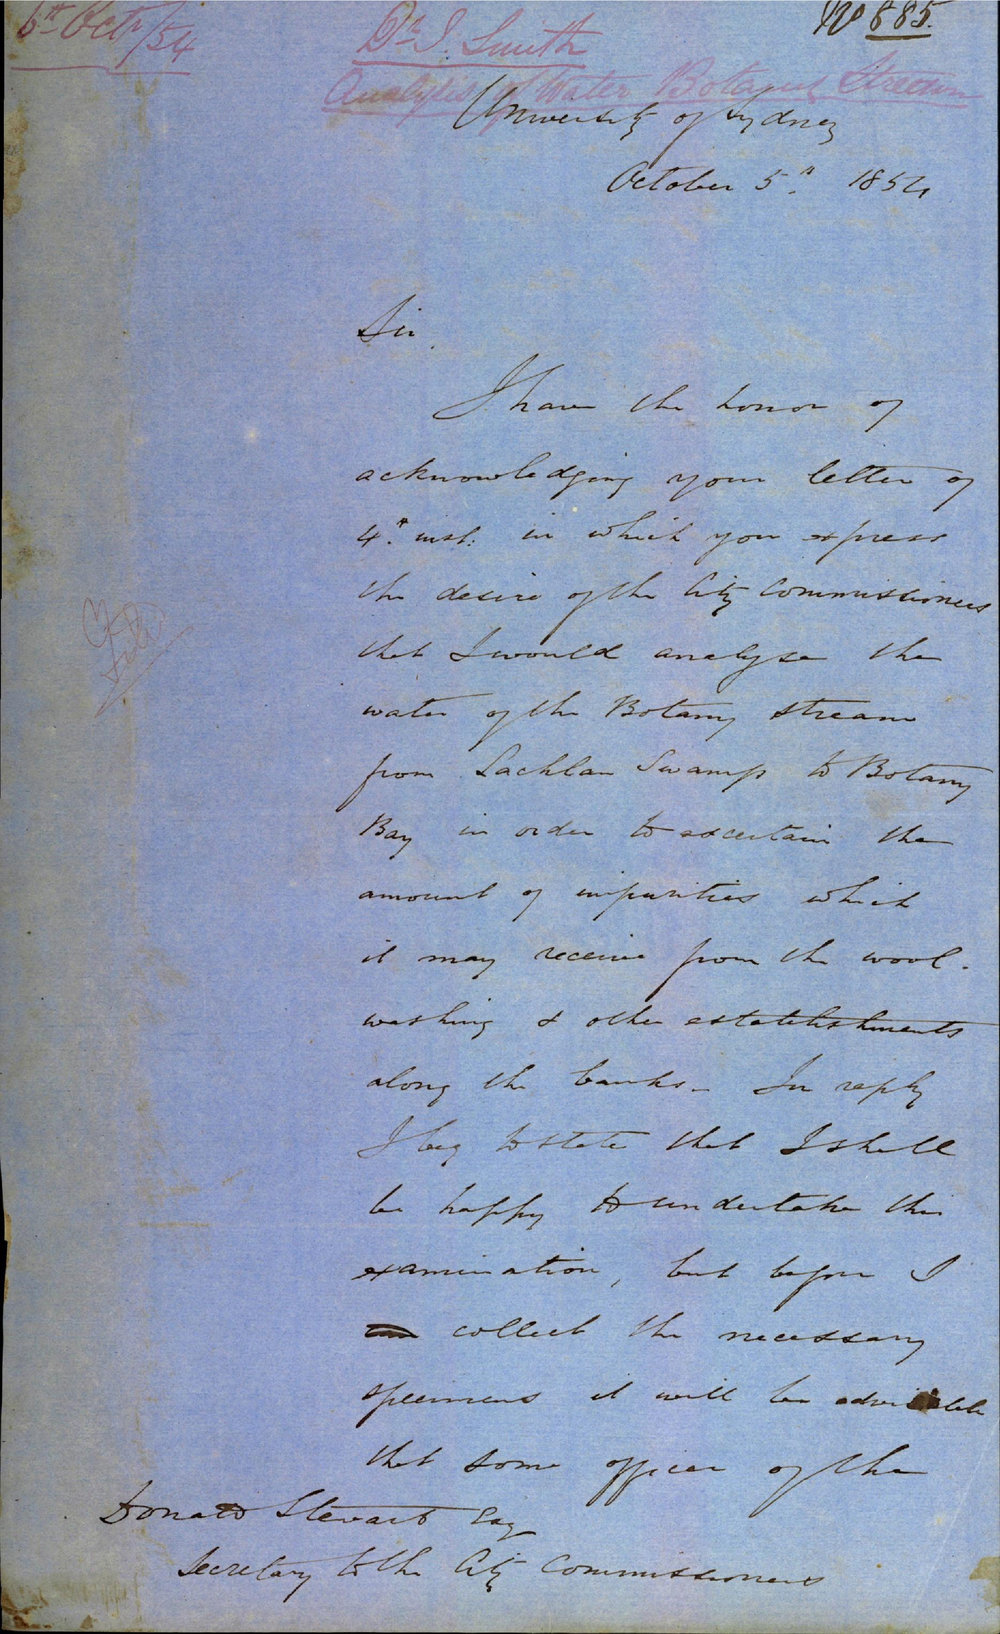 6th Octr/54
Dr J. Smith
No 885.
Analysis of Water Botany Stream
University of Sydney
October 5th. 1854
Sir
I have the honor of
acknowledging your letter of
4th. inst: in which you express
the desire of the City Commissioners
that I would analyse the
water of the Botany stream
from Lachlan Swamp to Botany
Bay in order to ascertain the
amount of impurities which
it may receive from the wool-
washing & other establishments
along the banks - In reply
I beg to state that I shall
be happy to undertake this
examination, but before I
collect the necessary
specimens it will be advisable
that some officer of the
Donald Stewart Esq
Secretary to the City Commissioners
File